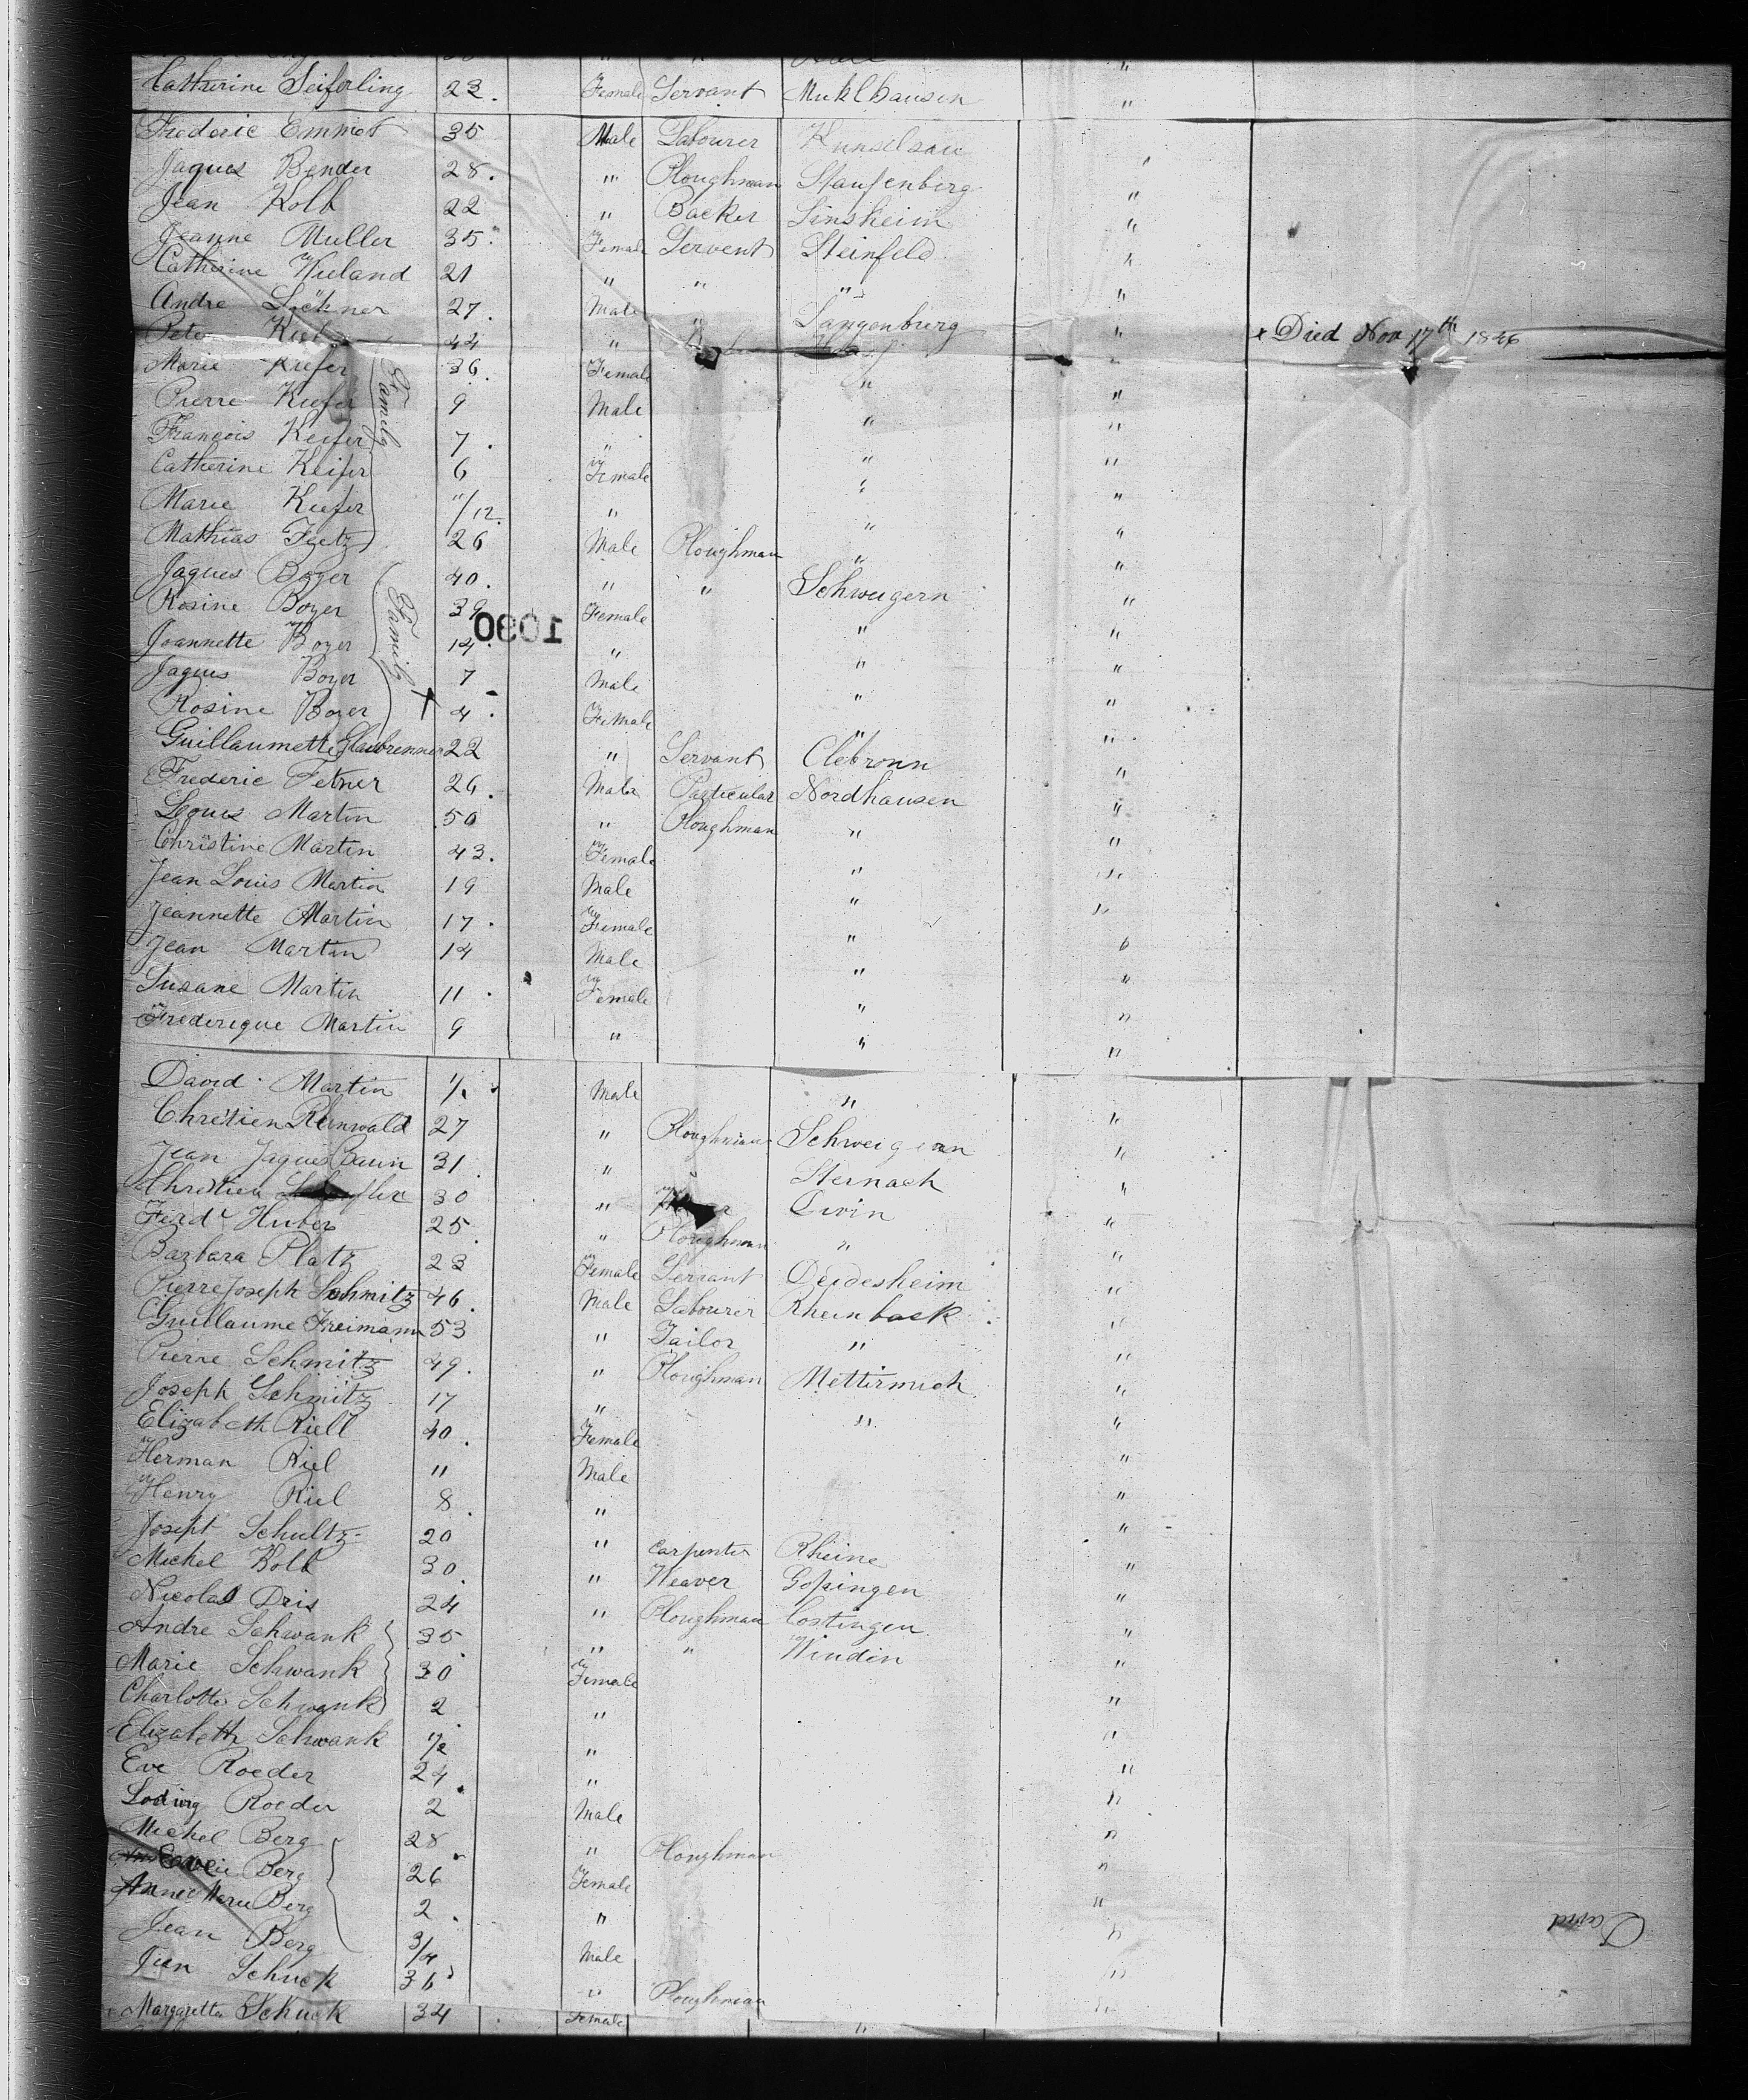 Catherine Seiferling 23. Female Servant Muhlhausen "
Frederic Emmet 35 Male Labourer Kunselsau "
Jaques Bender 28. " Ploughman Staufenberg "
Jean Kolb 22 " Backer Sinsheim "
Jeanne Muller 35. Female Servent Steinfeld "
Catherine Wieland 21 " " " "
Andre 27. Male " Langenburg "
Peter 44 " " x Died Nov 17th 1846
Marie Kiefer 36. Female " "
Pierre Kiefer 9 Male " "
Family
François Keifer 7. " " "
Catherine Keifer 6 Female " "
Marie Kiefer 11/12. " " "
Mathias Fietz 26 Male Ploughman " "
Jaques Boyer 40. " " Schweigern "
Rosine Boyer 39 Female " "
1090
Joannette Boyer 14. " " "
Family
Jaques Boyer 7 Male " "
Rosine Boyer x 4. Female " "
Guillaumette 22 " Servant Clebronn "
Frederic Fetner 26. Male Particular Nordhausen "
Louis Martin 50 " Ploughman " "
Christine Martin 43. Female " "
Jean Louis Martin 19 Male " "
Jeannette Martin 17. Female " "
Jean Martin 14 Male " "
Susane Martin 11. Female " "
Frederique Martin 9 " " "
David Martin Male "
Chretien Reinwald 27 " Ploughman Schweigern "
Jean Jaques 31 " Sternach "
Chretien 30 " "
Ferd Huber 25. " Ploughman " "
Barbara Platz 23 Female Servant Deidesheim "
Pierre Joseph Schmitz 46. Male Labourer Rheinback "
Guillaume Freimann 53 " Tailor " "
Pierre Schmitz 49. " Ploughman Mettirmich "
Joseph Schmitz 17 " " "
Elizabeth Riell 40. Female "
Herman Riel 11 Male "
Henry Riel 8. " "
Josept Schultz 20 " Carpenter Rheine "
Michel Kolb 30. " Weaver Gopingen "
Nicolas Dris 24 " Ploughman Costingen "
Andre Schwank 35. " " Windin "
Marie Schwank 30 Female "
Charlotte Schwank 2. " "
Elizabeth Schwank 1/2 " "
Eve Roeder 24. " "
Lodwig Roeder 2 Male "
Michel Berg 28. " Ploughman "
Berg 26 Female "
Anne Marie Berg 2. " "
Jean Berg 3/4 Male "
David
Jean Schuck 36 " Ploughman "
Margaretta Schuck 34 Female "